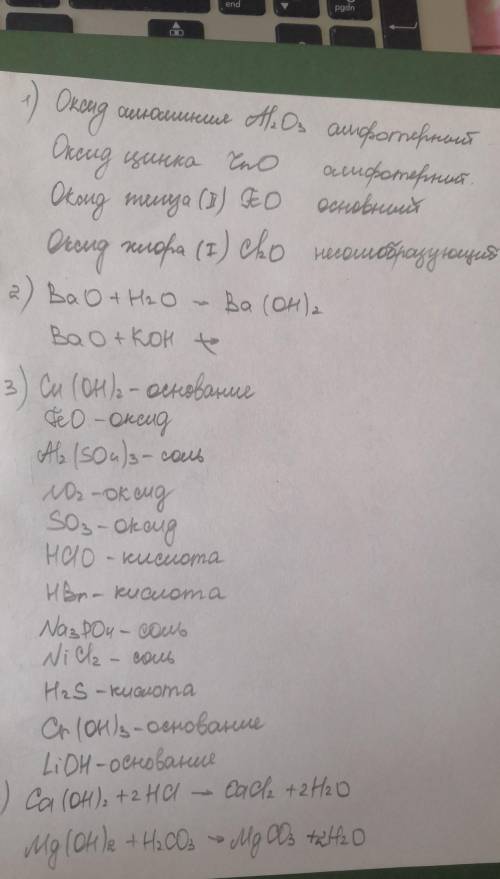 end
pgdn
1) Оксид алюминия Al2O3 амфотерный
Оксид цинка ZnO амфотерный.
Оксид железа (II) FeO основный
Оксид хлора (I) Cl2O несолеобразующий
2) BaO + H2O → Ba(OH)2
BaO + KOH ↛
3) Cu(OH)2 - основание
FeO - оксид
Al2(SO4)3 - соль
NO2 - оксид
SO3 - оксид
HClO - кислота
HBr - кислота
Na3PO4 - соль
NiCl2 - соль
H2S - кислота
Cr(OH)3 - основание
LiOH - основание
) Ca(OH)2 + 2HCl → CaCl2 + 2H2O
Mg(OH)2 + H2CO3 → MgCO3 + 2H2O